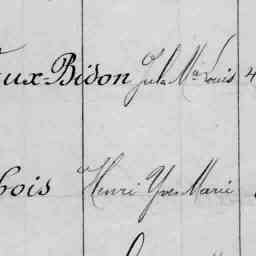 ux-Bidon Jules Mie Louis 4
bois Henri Yves Marie